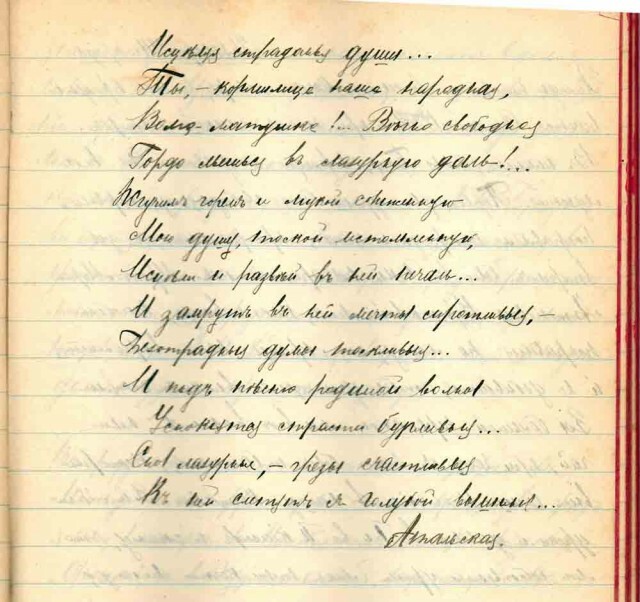 Исцѣляя страданья души...
Ты, – кормилица наша народная,
Волга-матушка!.. Вѣчно свободная
Гордо мчишься въ лазурную даль!...
Жгучимъ горемъ и мукой сожженную
Мою душу, тоской истомленную,
Исцѣли и развѣй въ ней печаль...
И замрутъ въ ней мечты сиротливыя, –
Безотрадныя думы тоскливыя...
И подъ пѣсню родимой волны
Успокоятся страсти бурливыя...
Сны лазурные, – грезы счастливыя
Къ ней слетятъ съ голубой вышины...